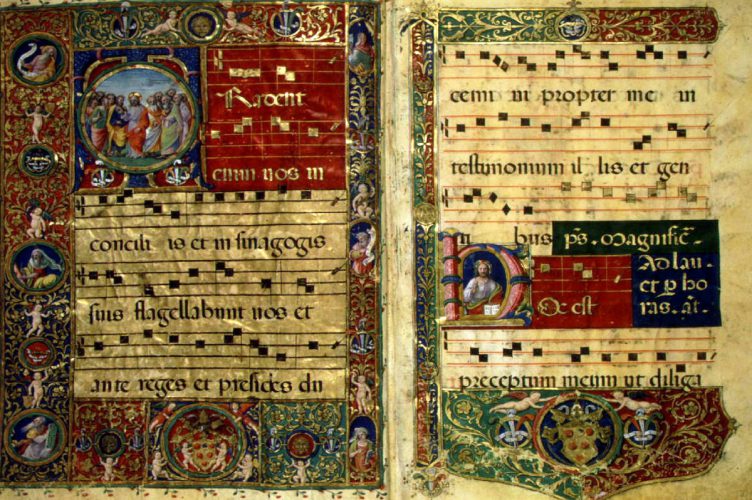 Radent
enim vos in
concili is et in sinagogis
suis flagellabunt vos et
ante reges et presides du
cemi ni propter me in
testimonium il lis et gen
bus ps. Magnific̄.
Ad lau.
et p̱ ho
ras. añ.
Oc est
preceptum meum ut diliga